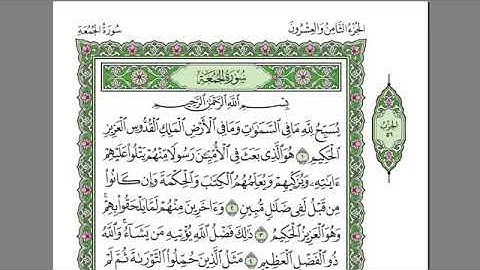 الجزء الثامن والعشرون
سورة الجمعة
سُورَةُ الجُمُعَةِ
بِسْمِ اللَّهِ الرَّحْمَٰنِ الرَّحِيمِ
يُسَبِّحُ لِلَّهِ مَا فِي السَّمَٰوَٰتِ وَمَا فِي الْأَرْضِ الْمَلِكِ الْقُدُّوسِ الْعَزِيزِ
الْحَكِيمِ ١ هُوَ الَّذِي بَعَثَ فِي الْأُمِّيِّـۧنَ رَسُولًا مِّنْهُمْ يَتْلُوا۟ عَلَيْهِمْ
ءَايَٰتِهِۦ وَيُزَكِّيهِمْ وَيُعَلِّمُهُمُ الْكِتَٰبَ وَالْحِكْمَةَ وَإِن كَانُوا۟
مِن قَبْلُ لَفِي ضَلَٰلٍ مُّبِينٍ ٢ وَءَاخَرِينَ مِنْهُمْ لَمَّا يَلْحَقُوا۟ بِهِمْ
وَهُوَ الْعَزِيزُ الْحَكِيمُ ٣ ذَٰلِكَ فَضْلُ اللَّهِ يُؤْتِيهِ مَن يَشَآءُ وَاللَّهُ
ذُو الْفَضْلِ الْعَظِيمِ ٤ مَثَلُ الَّذِينَ حُمِّلُوا۟ التَّوْرَىٰةَ ثُمَّ لَمْ
الحزب
٥٦